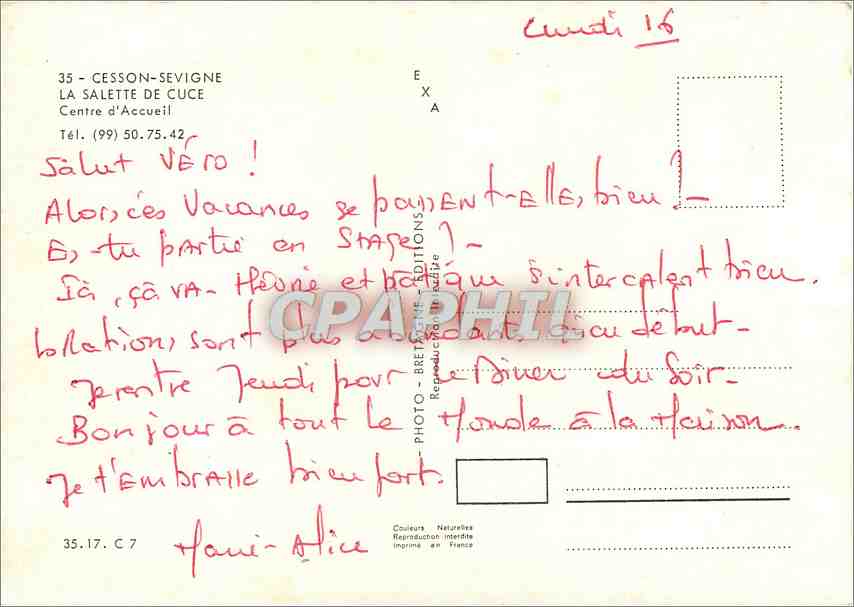 Lundi 16
35 - CESSON-SEVIGNE
LA SALETTE DE CUCE
Centre d'Accueil
Tél. (99) 50.75.42
E
X
A
Salut VÉro !
Alors, ces Vacances se passENt-ELLEs bien ? -
Es-tu partie en StAGE ? -
Ià, çà VA - théorie et pratique s'intercalent bien.
les Rations sont plus abondantes qu'au début -
Je rentre Jeudi pour le Diner du Soir -
Bonjour à tout le Monde à la Maison.
Je t'EmbrAsse bien fort.
Marie-Alice
PHOTO - BRETAGNE - EDITIONS
Reproduction interdite
CPAPHIL
35.17. C 7
Couleurs Naturelles
Reproduction interdite
Imprimé en France